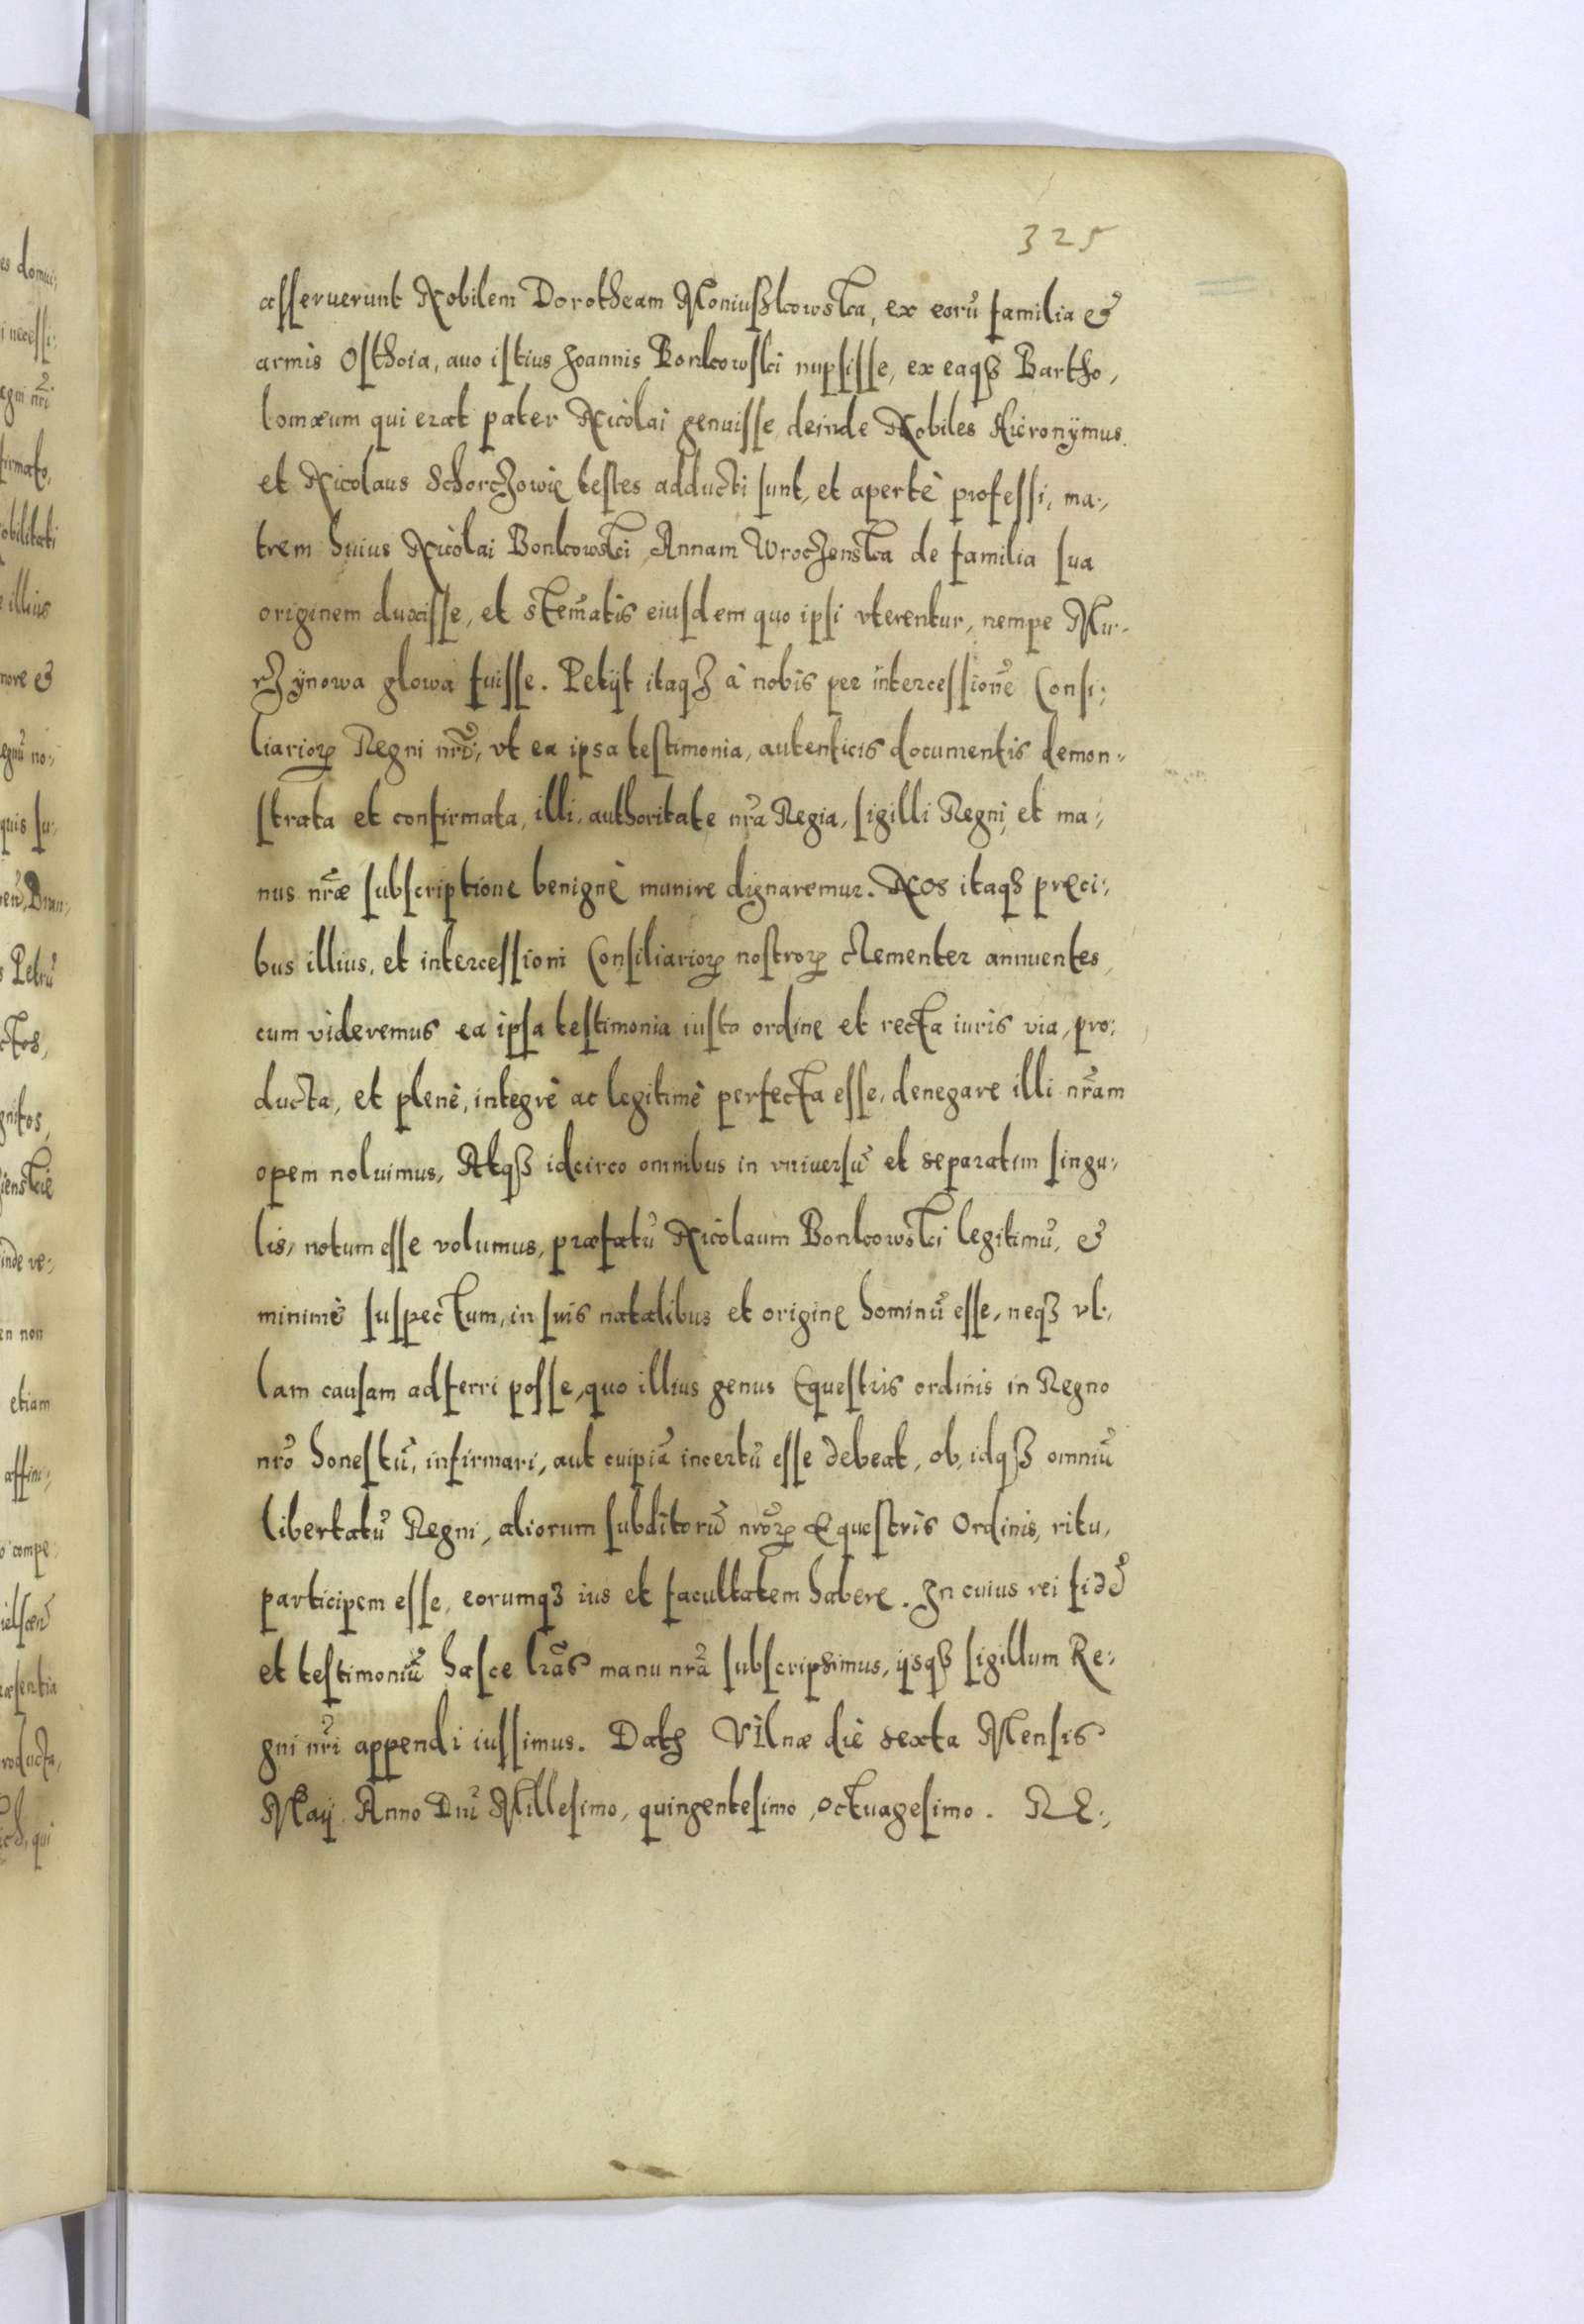 325
asseruerunt Nobilem Dorotheam Moniuszkowska, ex eorũ familia &
armis Osthoia, auo istius Joannis Bonkowski nupsisse, ex eaqȝ Bartho,
lomæum qui erat pater Nicolai genuisse, deinde Nobiles Hieronÿmus
et Nicolaus Schorczowie testes adducti sunt, et apertè professi, ma,
trem huius Nicolai Bonkowski, Annam Wroczenska de familia sua
originem duxisse, et stem̃atis eiusdem quo ipsi vterentur, nempe Mu,
rzÿnowa glowa fuisse. Petijt itaqȝ à nobis per intercessionẽ Consi,
liarioꝝ Regni nr̃i, vt ea ipsa testimonia, autenticis documentis demon,
strata et confirmata, illi, authoritate nr̃a Regia, sigilli Regni, et ma,
nus nr̃æ subscriptione benignè munire dignaremur. Nos itaqȝ preci,
bus illius, et intercessioni Consiliarioꝝ nostroꝝ clementer annuentes,
cum videremus ea ipsa testimonia iusto ordine et recta iuris via, pro,
ducta, et plenè, integrè ac legitimè perfecta esse, denegare illi nr̃am
opem noluimus, Atqȝ idcirco omnibus in vniuersũ et separatim singu,
lis, notum esse volumus, præfatũ Nicolaum Bonkowski legitimũ, &
minimè suspectum, in suis natalibus et origine hominũ esse, neqȝ vl,
lam causam adferri posse, quo illius genus Equestris ordinis in Regno
nr̃o honestũ, infirmari, aut cuipiã incertũ esse debeat, ob, idqȝ omniũ
libertatũ Regni, aliorum subditorũ nr̃oꝝ Equestris Ordinis, ritu,
participem esse, eorumqȝ ius et facultatem habere. In cuius rei fidẽ
et testimoniũ hasce lr̃as manu nr̃a subscripsimus, ijsqȝ sigillum Re,
gni nr̃i appendi iussimus. Datȝ Vilnæ die sexta Mensis
Maij Anno Dnĩ Millesimo, quingentesimo, octuagesimo. RE,